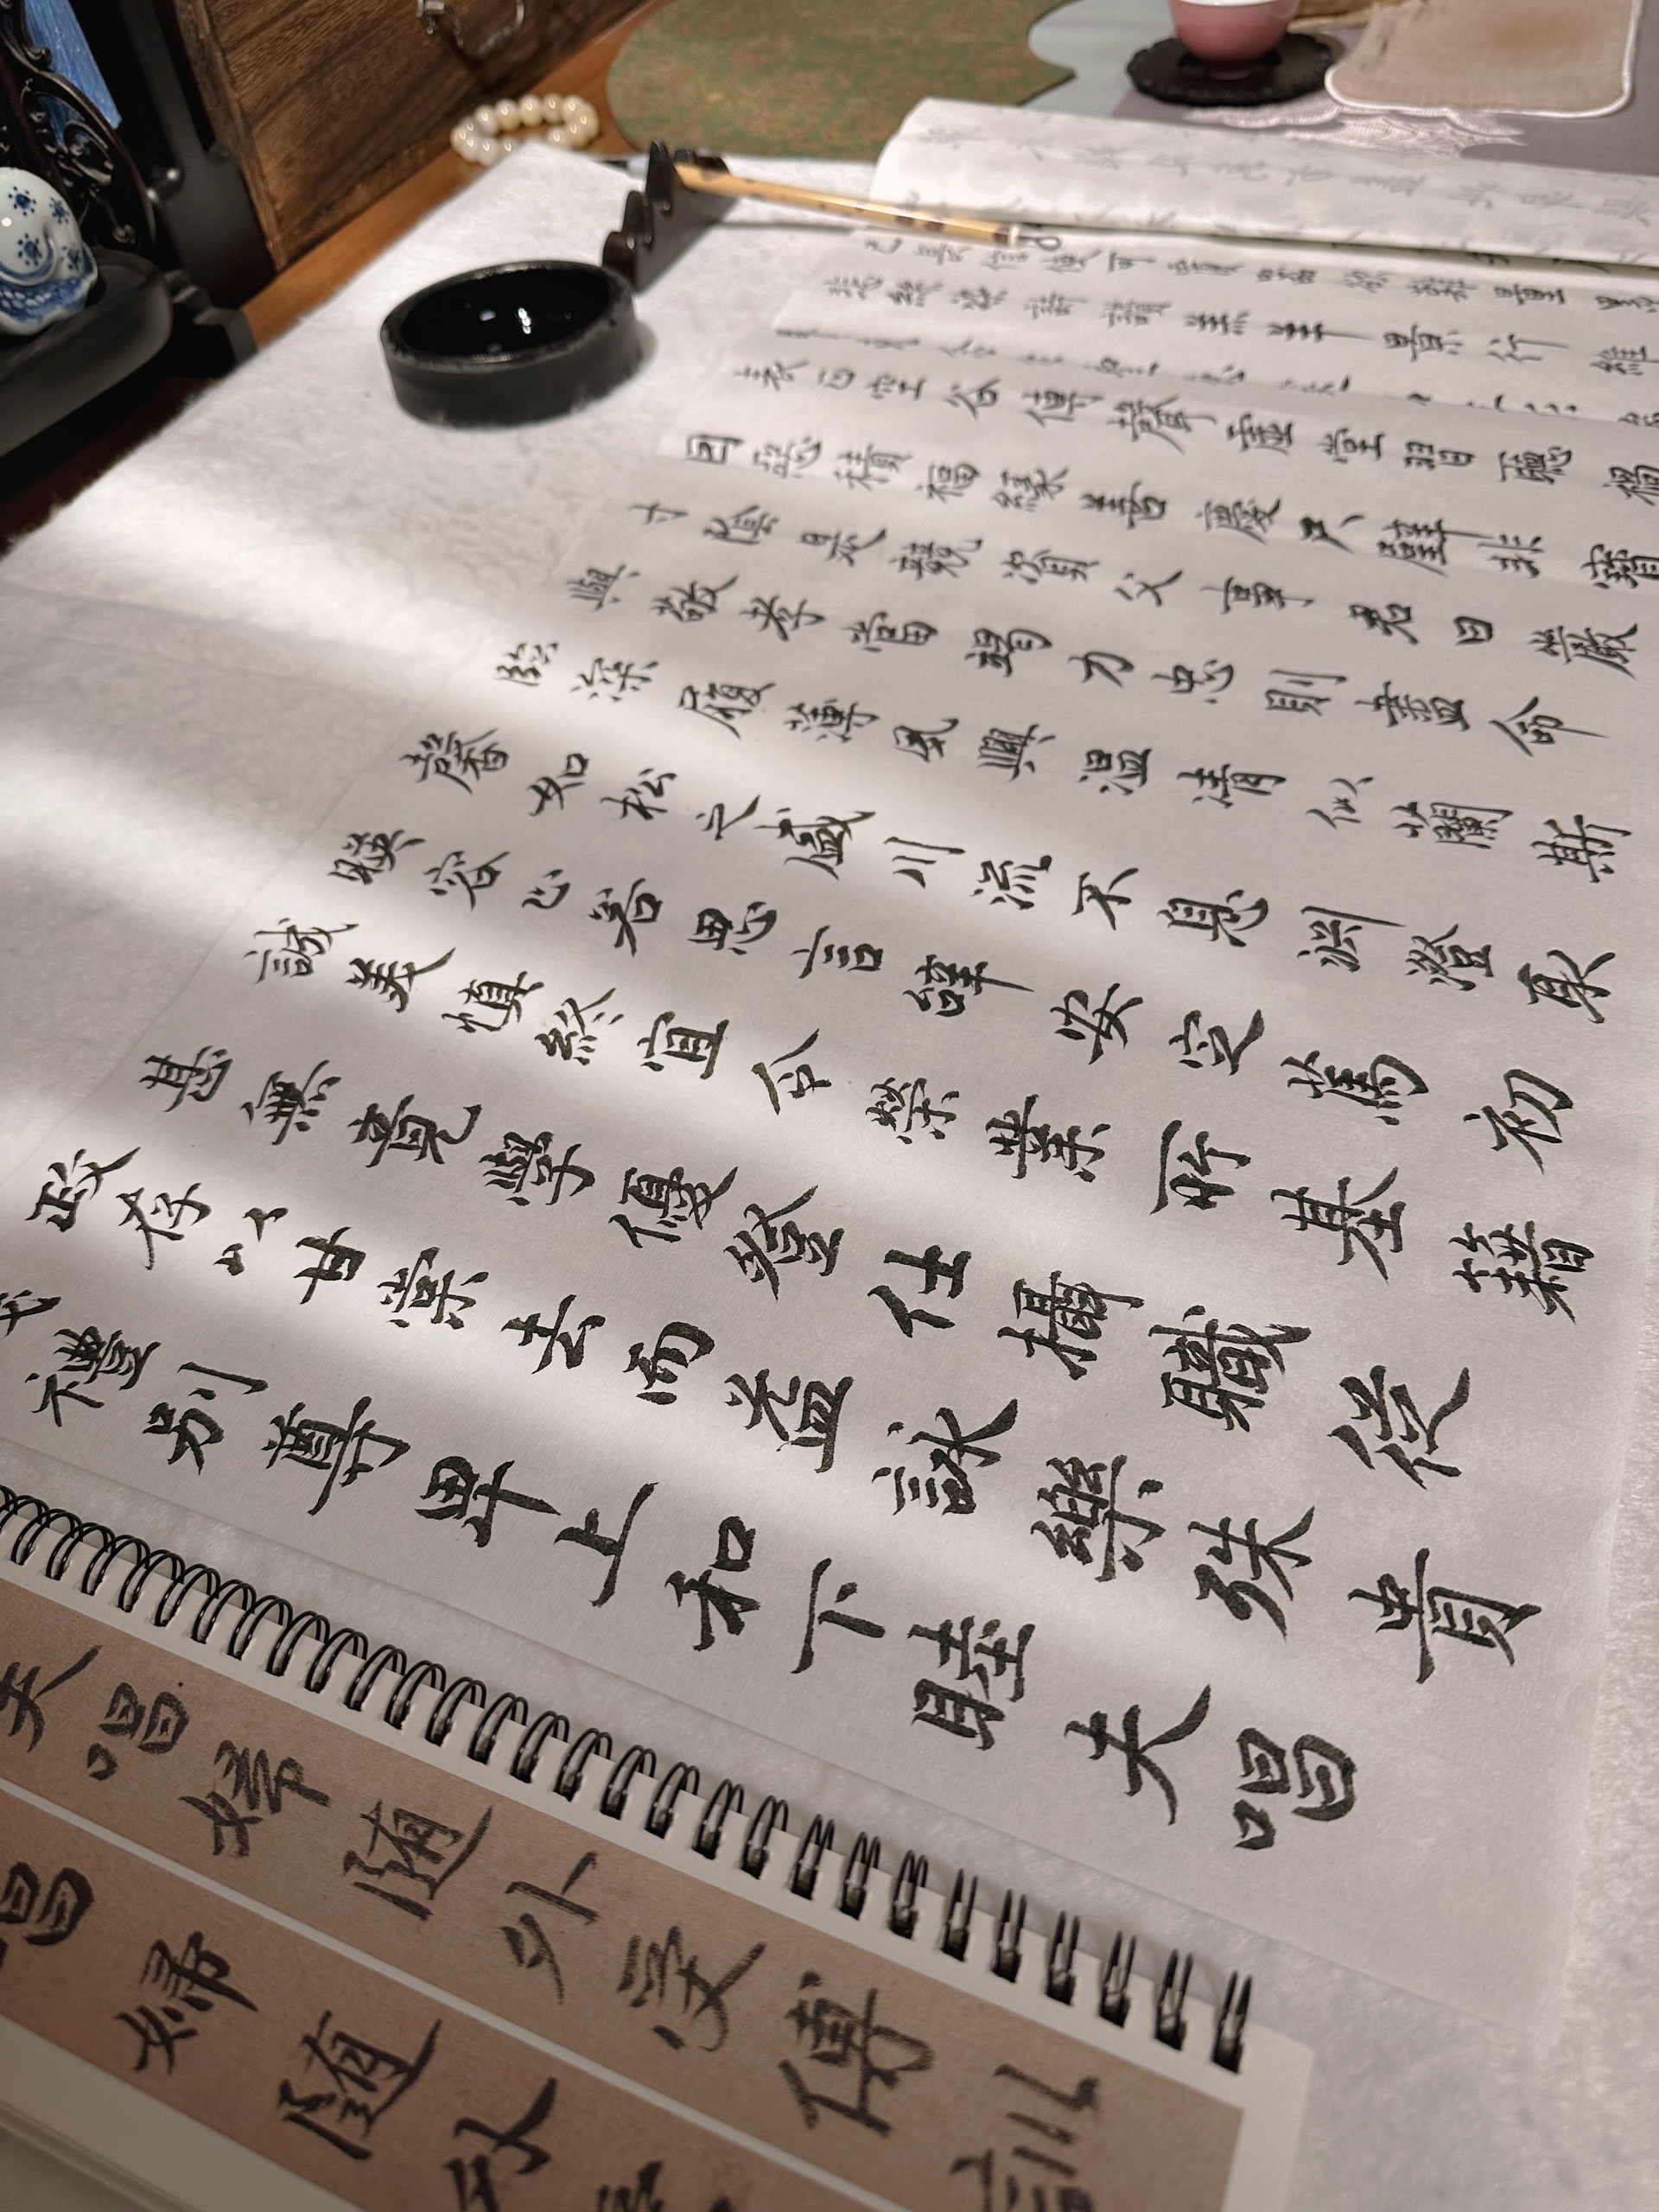 己長信使可覆器欲難量墨
悲絲染詩讚羔羊景行維
表正空谷傳聲虛堂習聽禍
因惡積福緣善慶尺璧非寶
寸陰是競資父事君曰嚴
與敬孝當竭力忠則盡命
臨深履薄夙興溫清似蘭斯
馨如松之盛川流不息淵澄取
暎容止若思言辭安定篤初
誠美慎終宜令榮業所基籍
甚無竟學優登仕攝職從
政存以甘棠去而益詠樂殊貴
禮別尊卑上和下睦夫唱
夫唱婦隨外受傅訓
唱婦隨